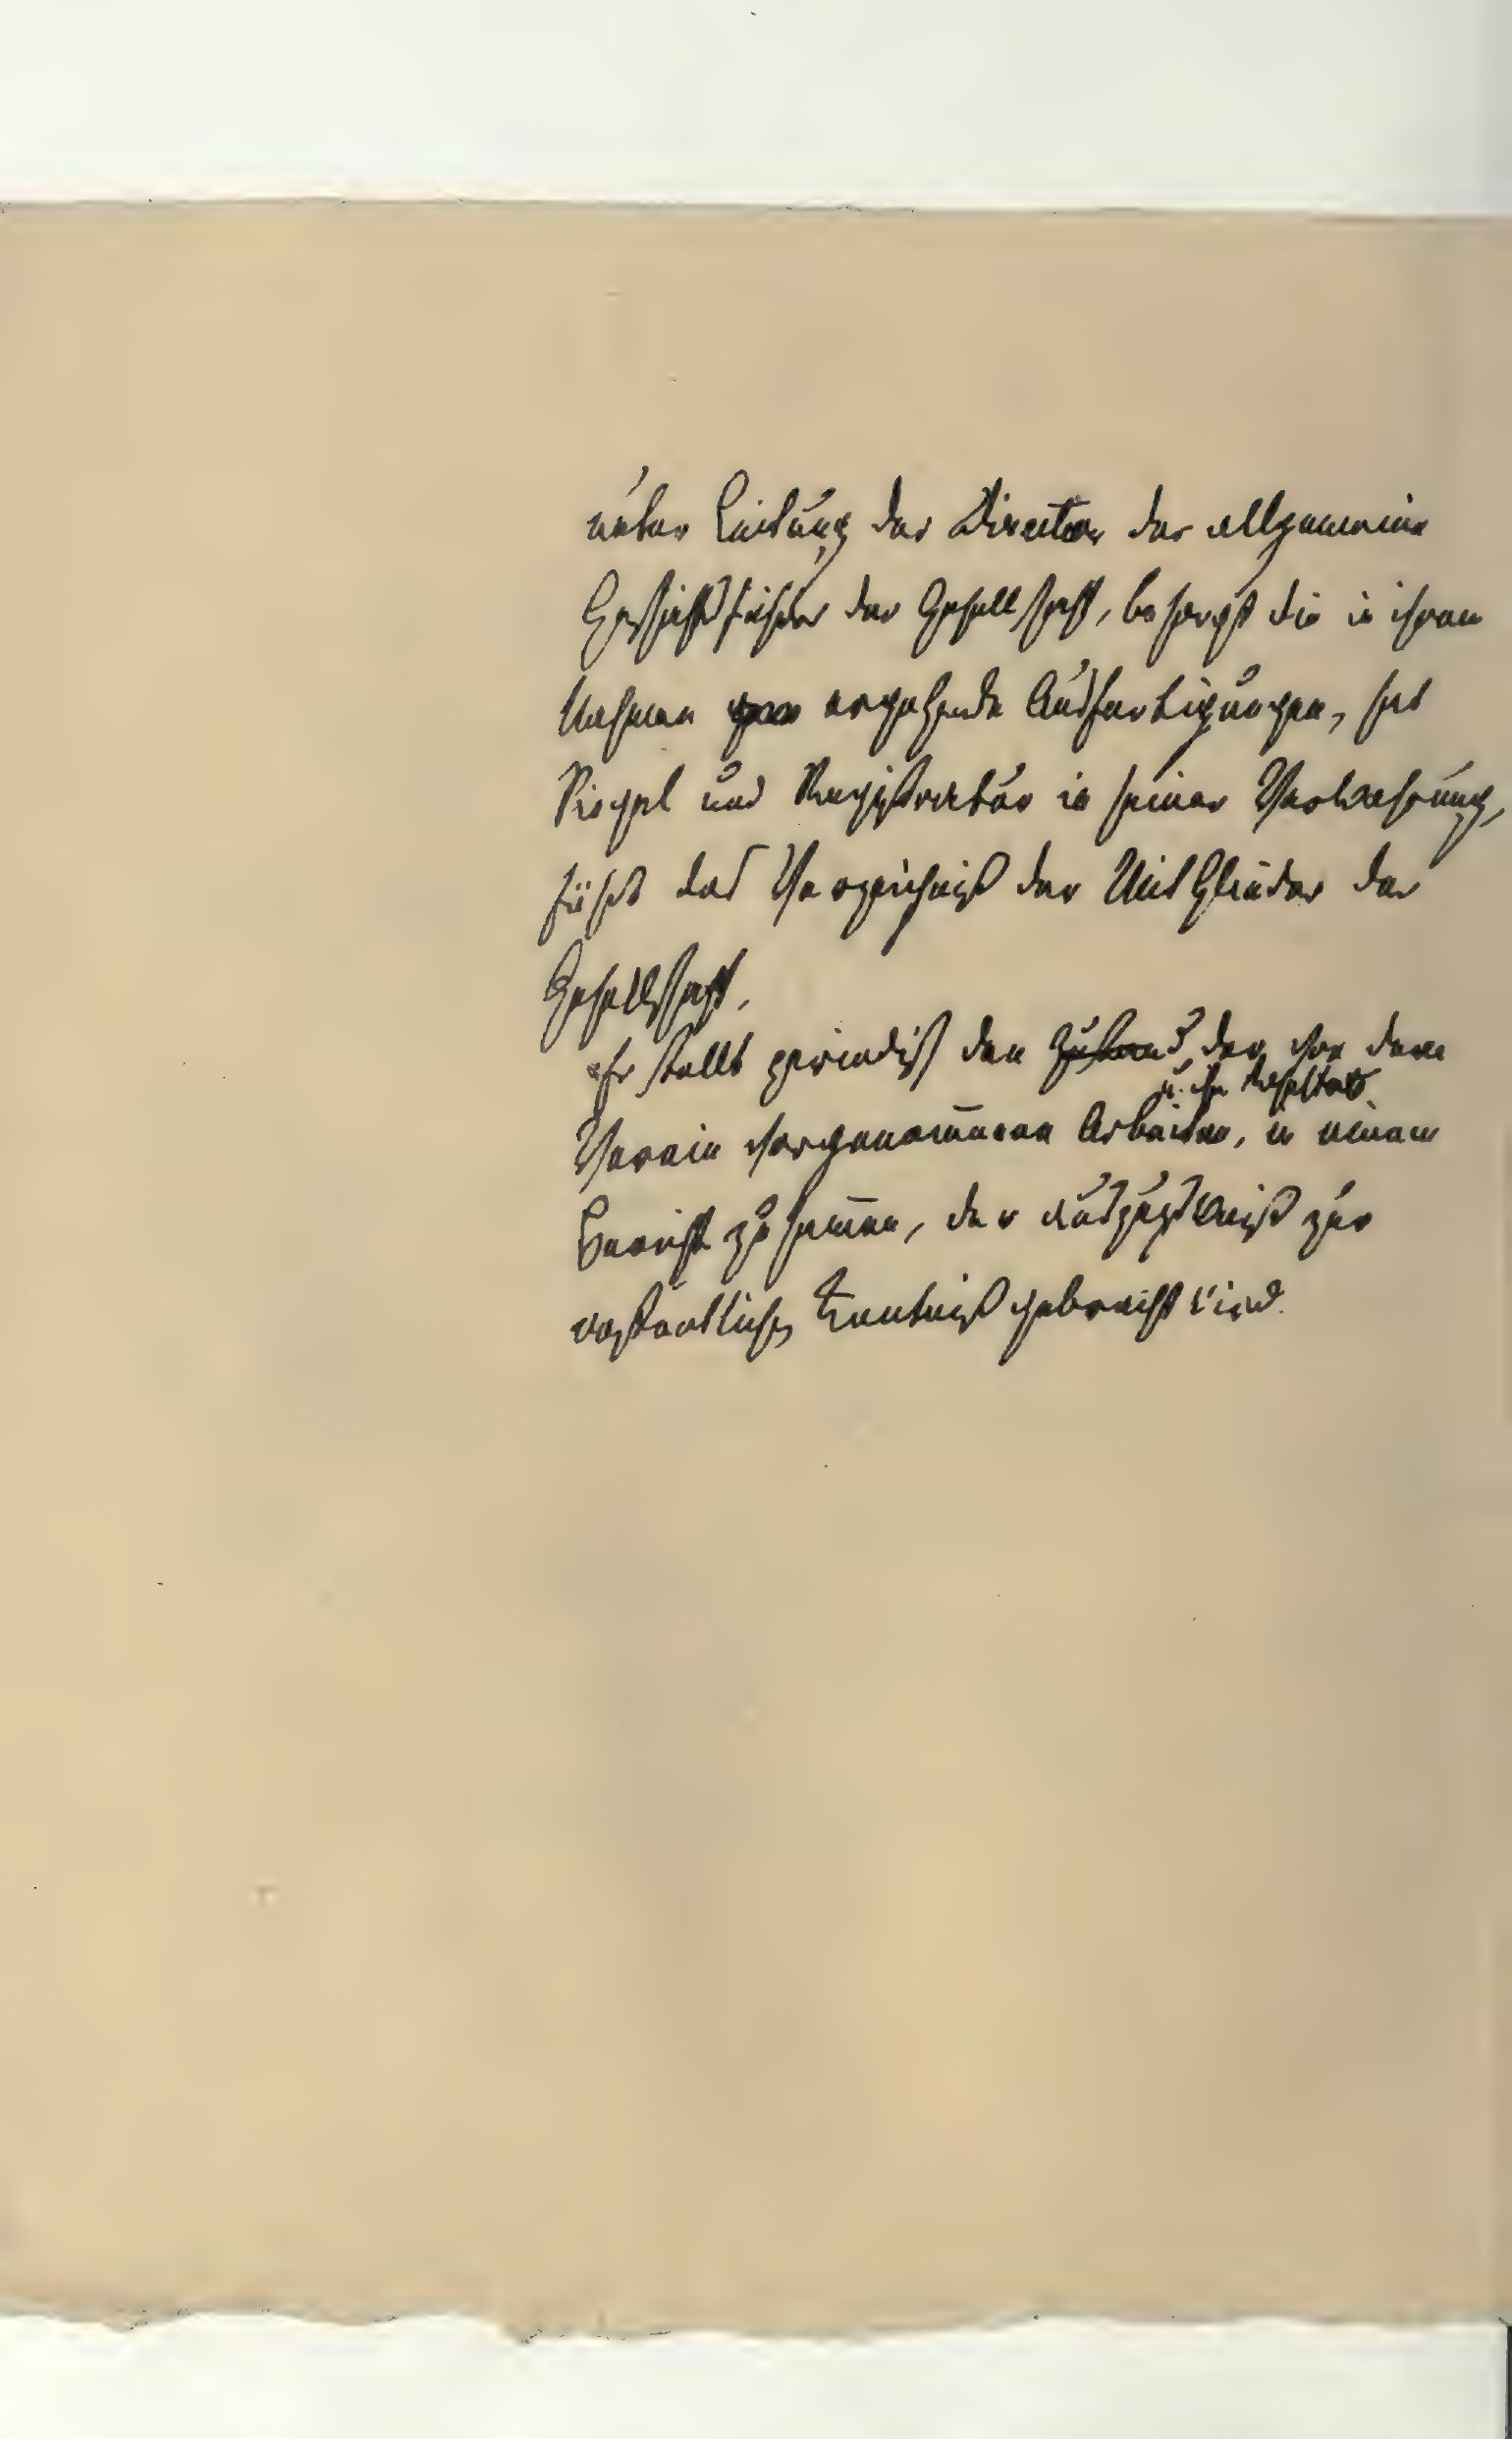 unter Leitung des Directors der allgemeine
Geschäftsführer der Gesellschaft, besorgt die in ihrem
Nahmen ergehende Ausfertigungen, hat
Siegel und Registratur in seiner Verwahrung,
führt das Verzeichniß der Mitglieder der
Gesellschaft.
Er stellt periodisch den Zustand der von dem
u. ihre Resultate
Verein vorgenomenen Arbeiten, in einem
Bericht zusamen, der auszugsweiß zur
öffentlichen Kentniß gebracht wird.